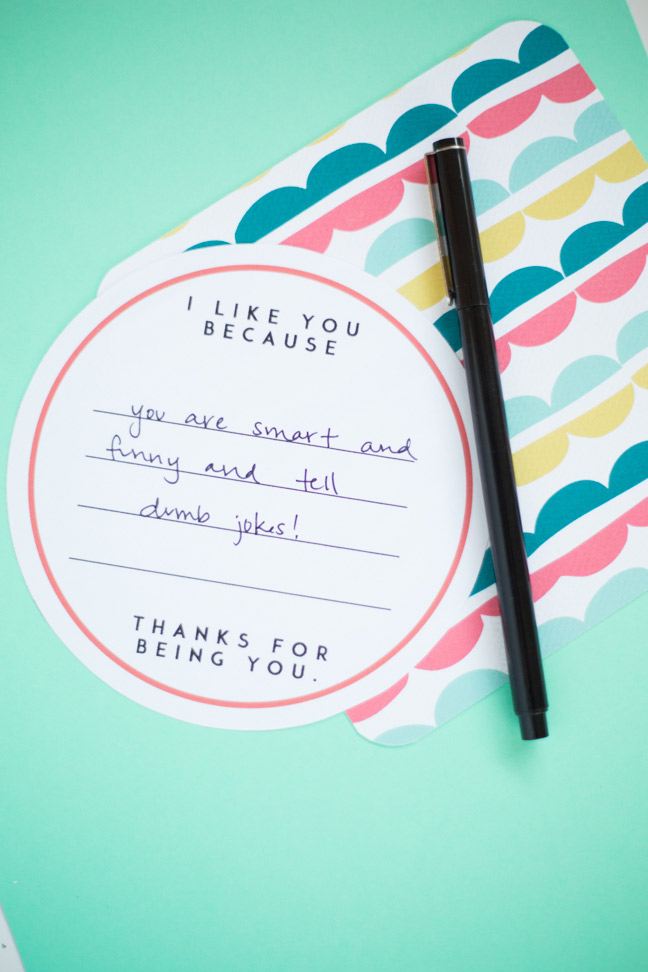 I LIKE YOU
BECAUSE
you are smart and
funny and tell
dumb jokes!
THANKS FOR
BEING YOU.